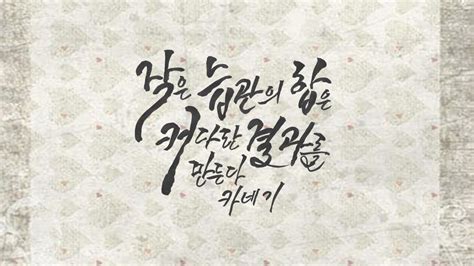 작은 습관의 합은
커다란 결과를
만든다
카네기